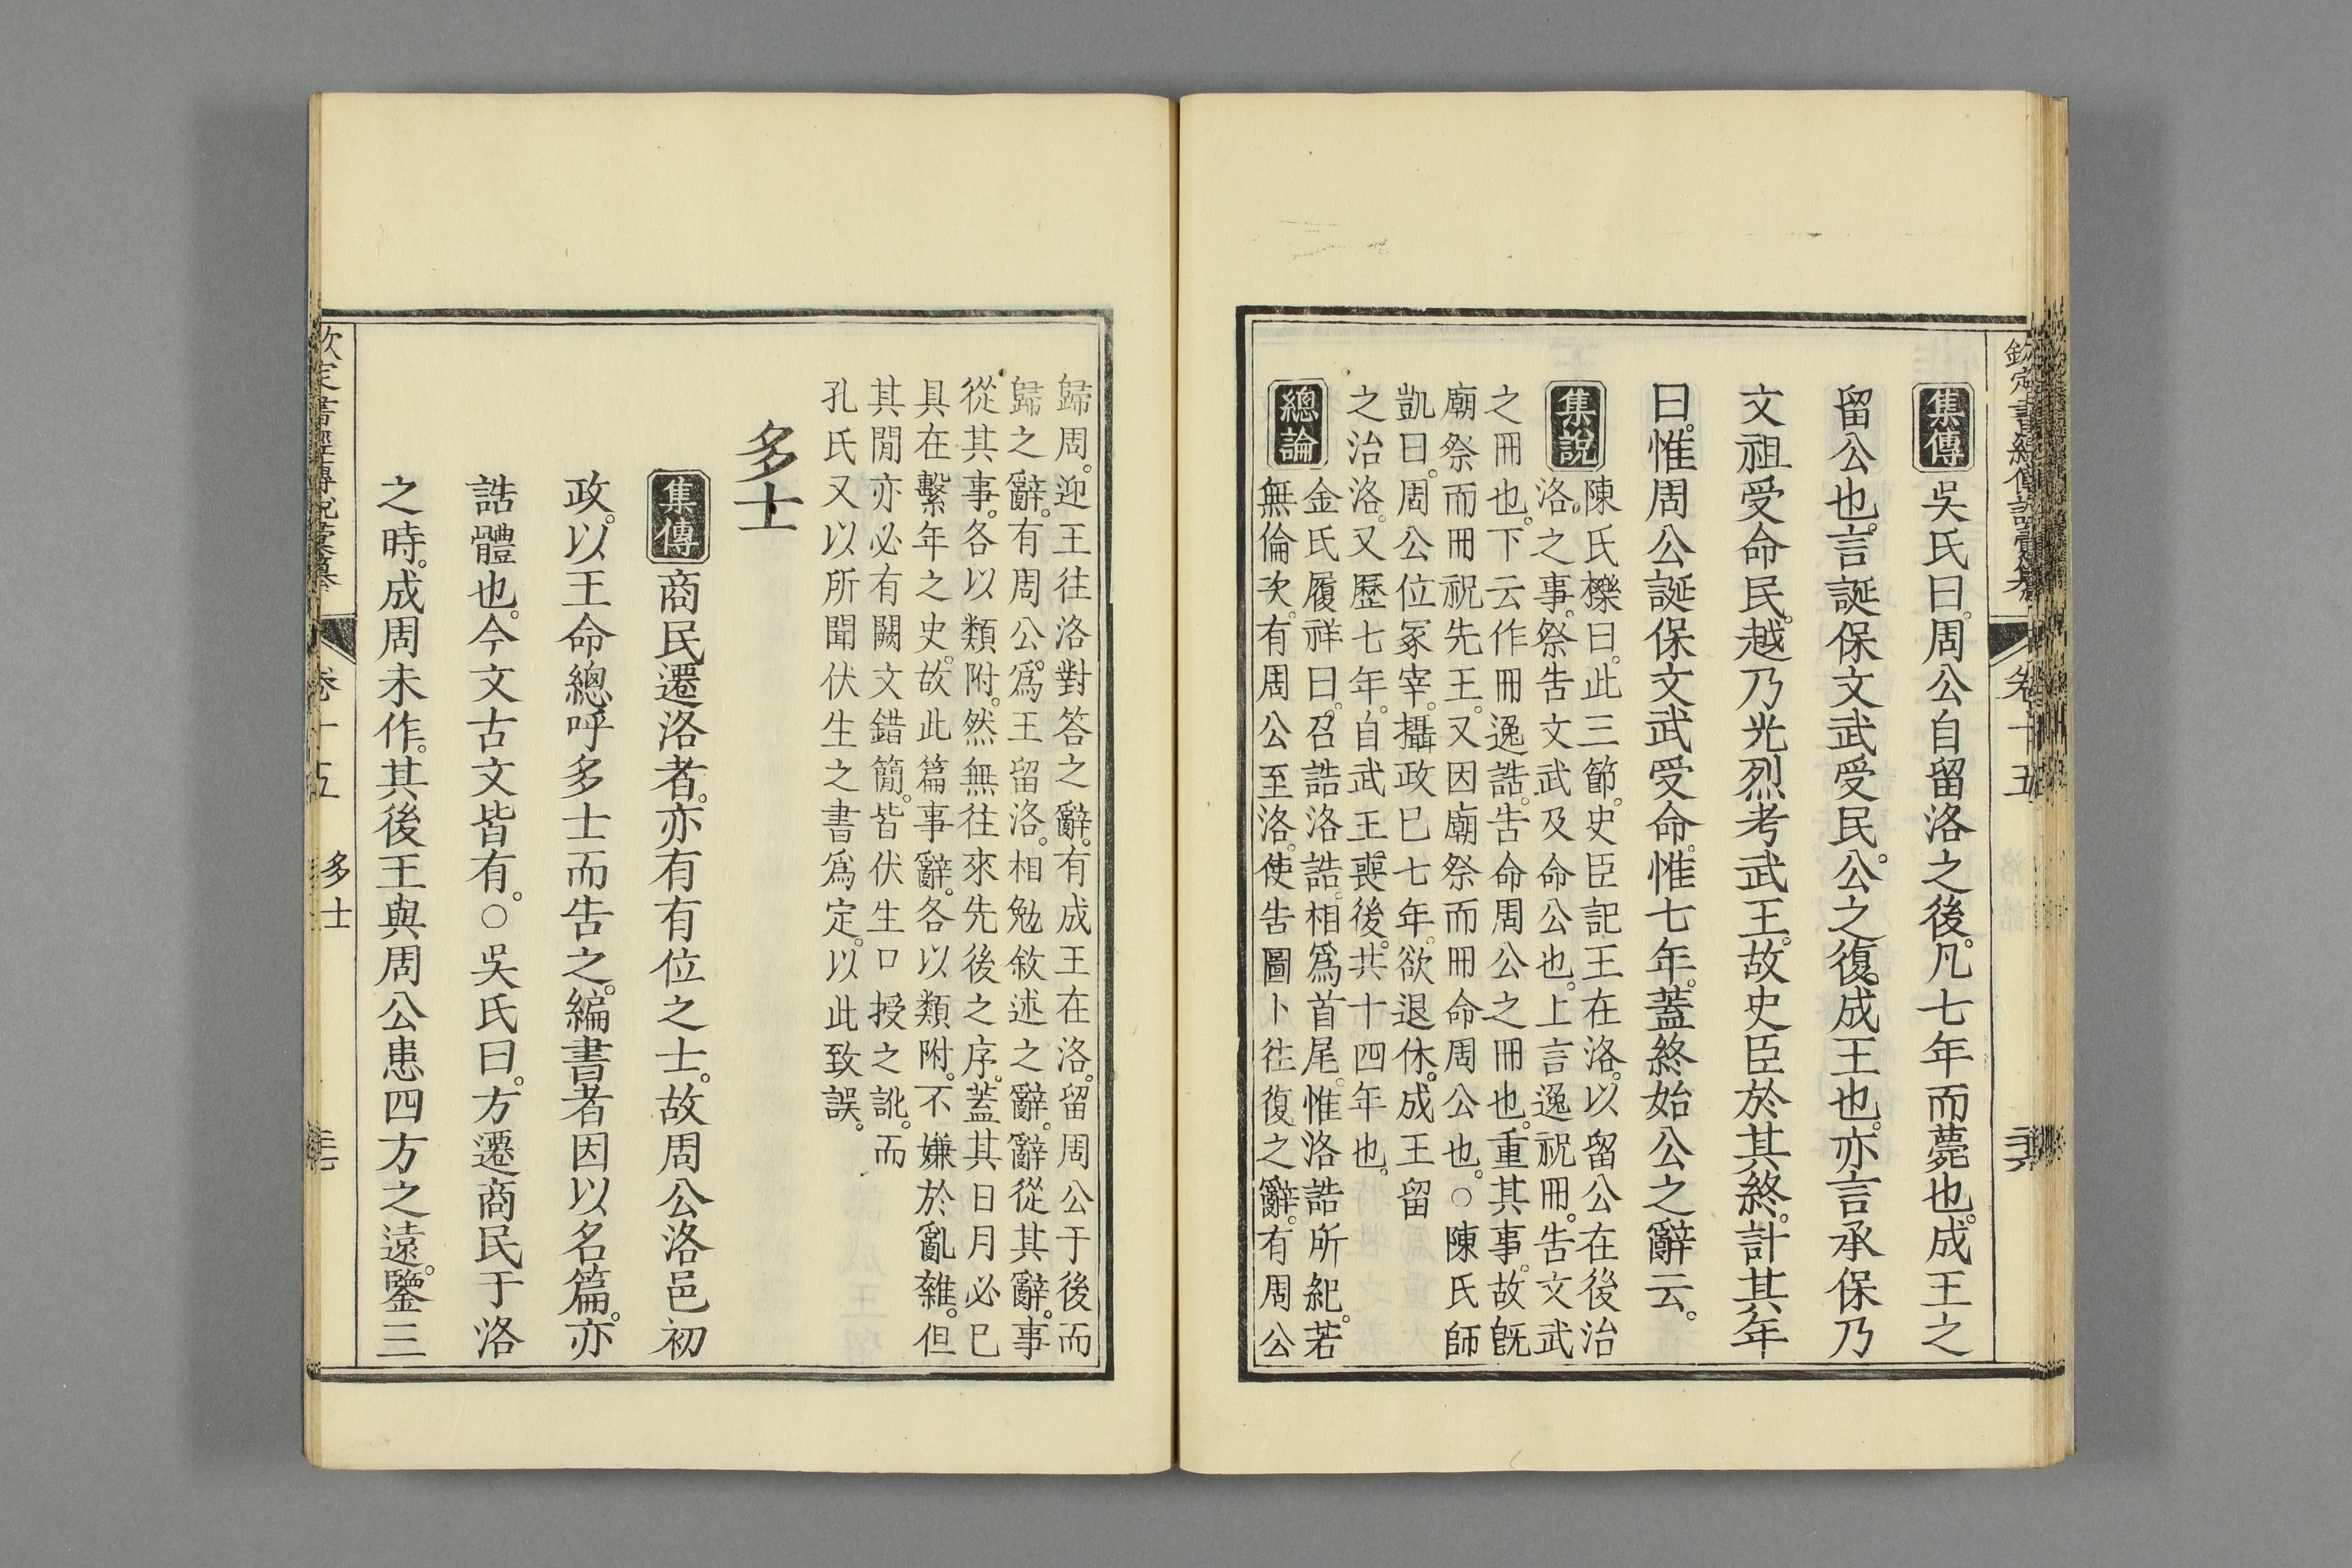 欽定書經傳說彙纂 卷十五
集傳 吳氏曰。周公自留洛之後。凡七年而薨也。成王之
留公也。言誕保文武受民。公之復。成王也。亦言承保乃
文祖受命民。越乃光烈考武王。故史臣於其終。計其年
曰。惟周公誕保文武受命。惟七年。蓋終始公之辭云。
集說 陳氏櫟曰。此三節。史臣記王在洛。以留公在後治
洛。之事。祭告文武及命公也。上言逸祝冊。告文武
之冊也。下云作冊逸誥。告命周公之冊也。重其事。故旣
廟祭而冊祝先王。又因廟祭而冊命周公也。○陳氏師
凱曰。周公位冢宰。攝政已七年。欲退休。成王留
之治洛。又歷七年。自武王。喪後。共十四年也。
總論 金氏履祥曰。召誥洛誥。相爲首尾。惟洛誥所紀。若
無倫次。有周公至洛。使告圖卜往復之辭。有周公
歸周。迎王往洛對答之辭。有成王在洛。留周公于後而
歸之辭。有周公。爲王留洛。相勉敘述之辭。辭從其辭。事
從其事。各以類附。然無往來先後之序。蓋其日月必已
具在繫年之史。故此篇事辭。各以類附。不嫌於亂雜。但
其閒亦必有闕文錯簡。皆伏生口授之訛。而
孔氏又以所聞伏生之書爲定。以此致誤。
多士
集傳 商民遷洛者。亦有有位之士。故周公洛邑初
政。以王命總呼多士而告之。編書者因以名篇。亦
誥體也。今文古文皆有。○吳氏曰。方遷商民于洛
之時。成周未作。其後王與周公患四方之遠。鑒三
欽定書經傳說彙纂 卷十五 多士